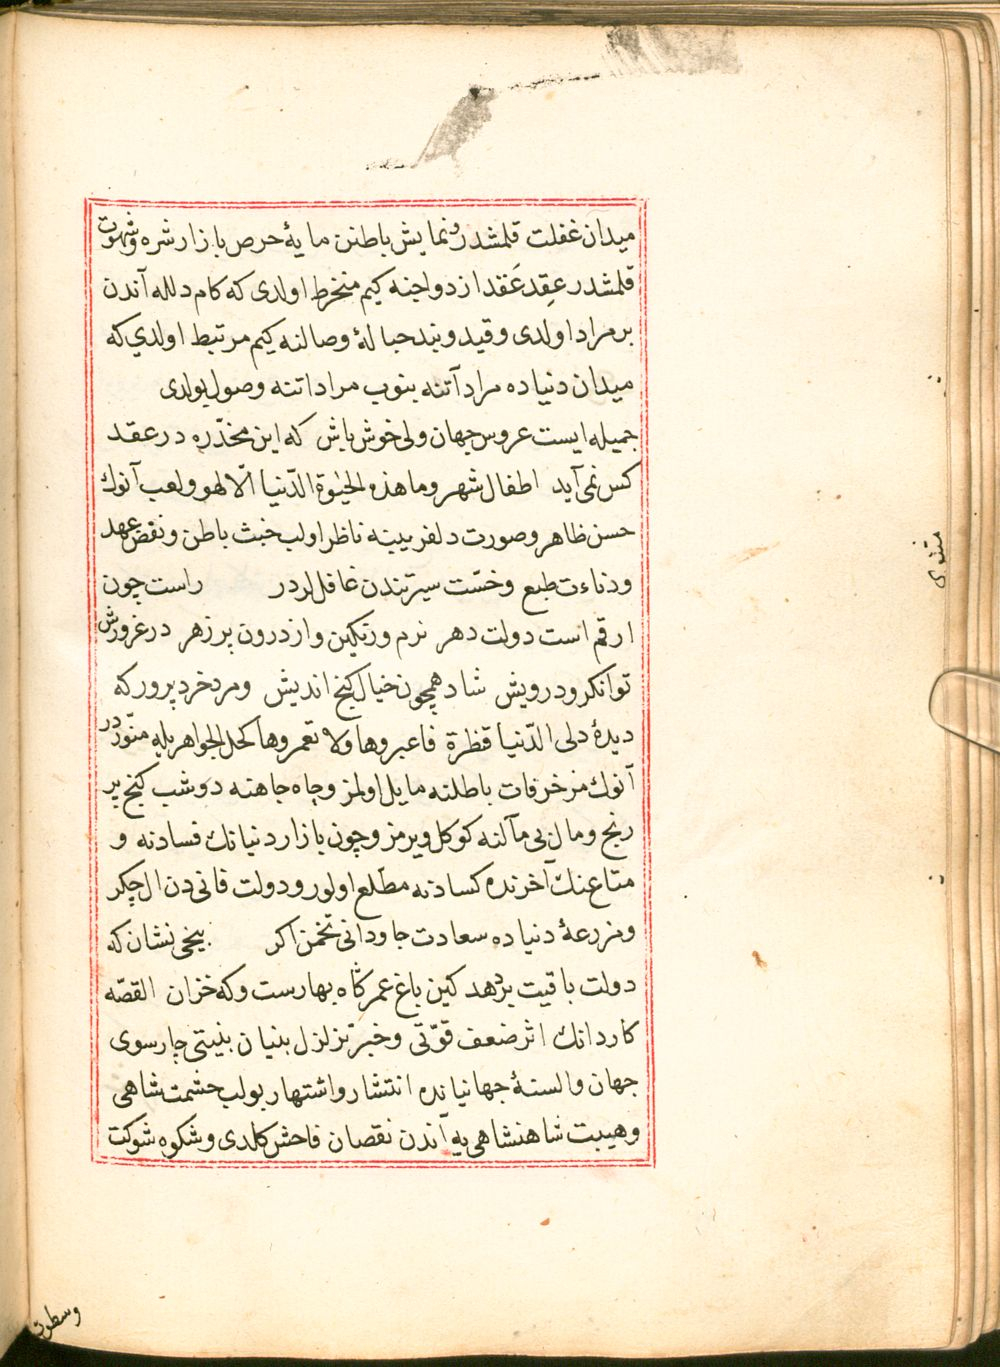 میدان غفلت قلمشدر ونمایش باطنن مایهٔ حرص بازار شره وشهوت
قلمشدر عِقد عَقد ازدواجنه کیم منخرط اولدی که کام دلله آندن
بر مراد اولدی وقید وبند حبالهٔ وصالنه کیم مرتبط اولدی که
میدان دنیاده مراد آتنه بنوب مراداتنه وصول بولدی
جمیله ایست عروس جهان ولی خوش باش که این مخدّره در عقد
کس نمی آید اطفال شهر وما هذه الحیوة الدّنیا الّا لهو ولعب آنوك
حسن ظاهر وصورت دلفریبینه ناظر اولب خبث باطن ونقض عهد
ودناءت طبع وخسّت سیرتندن غافللردر راست چون
ارقم است دولت دهر نرم ورنکین واز درون پر زهر در غرورش
توانکر ودرویش شاد همچون خیال کنج اندیش ومرد خرد پرور که
دیدهٔ دلی الدّنیا قنطرة فاعبروها ولا تعمروها کحل الجواهریله منوّردر
آنوك مزخرفات باطلنه مایل اولمز وجاه جاهنه دوشب کنج پر
رنج ومال بی مآلنه کوکل ویرمز وچون بازار دنیانك فسادنه و
متاعنك آخرنده کسادنه مطّلع اولور ودولت فانی دن ال چکر
ومزرعهٔ دنیاده سعادت جاودانی تخمن اکر بیخی نشان که
دولت باقیت بر دهد کین باغ عمر کاه بهارست وکه خزان القصّه
کاردانك اثر ضعف قوّتی وخبر تزلزل بنیان بنیتی چارسوی
جهان والسنهٔ جهانیانده انتشار واشتهار بولب حشمت شاهی
وهیبت شاهنشاهی یه آندن نقصان فاحش کلدی وشکوه شوکت
وسطوت
مثنوی